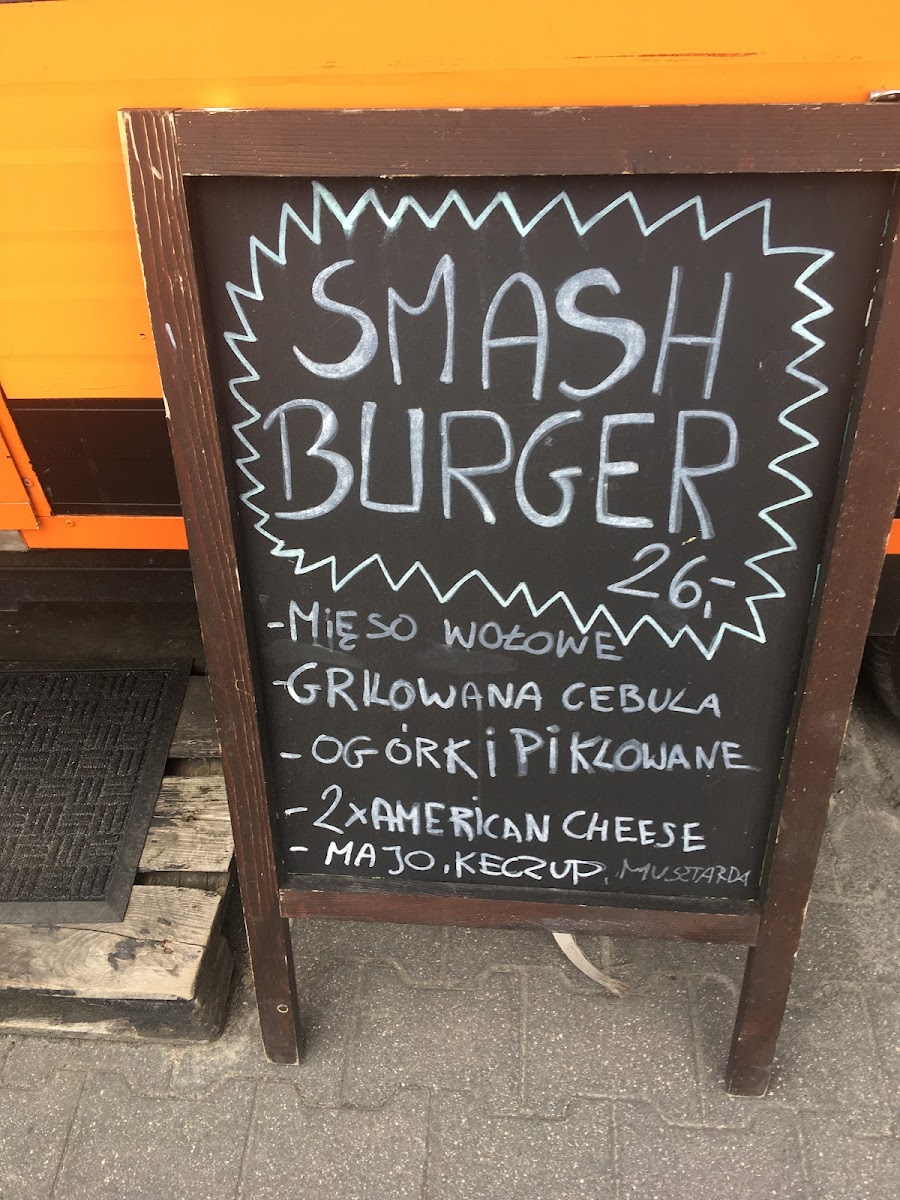 SMASH
BURGER
26,-
-MIĘSO WOŁOWE
-GRILOWANA CEBULA
- OGÓRKi PiKLOWANE
- 2xAMERiCAN CHEESE
- MAJO, KECZUP, MUSZTARDA